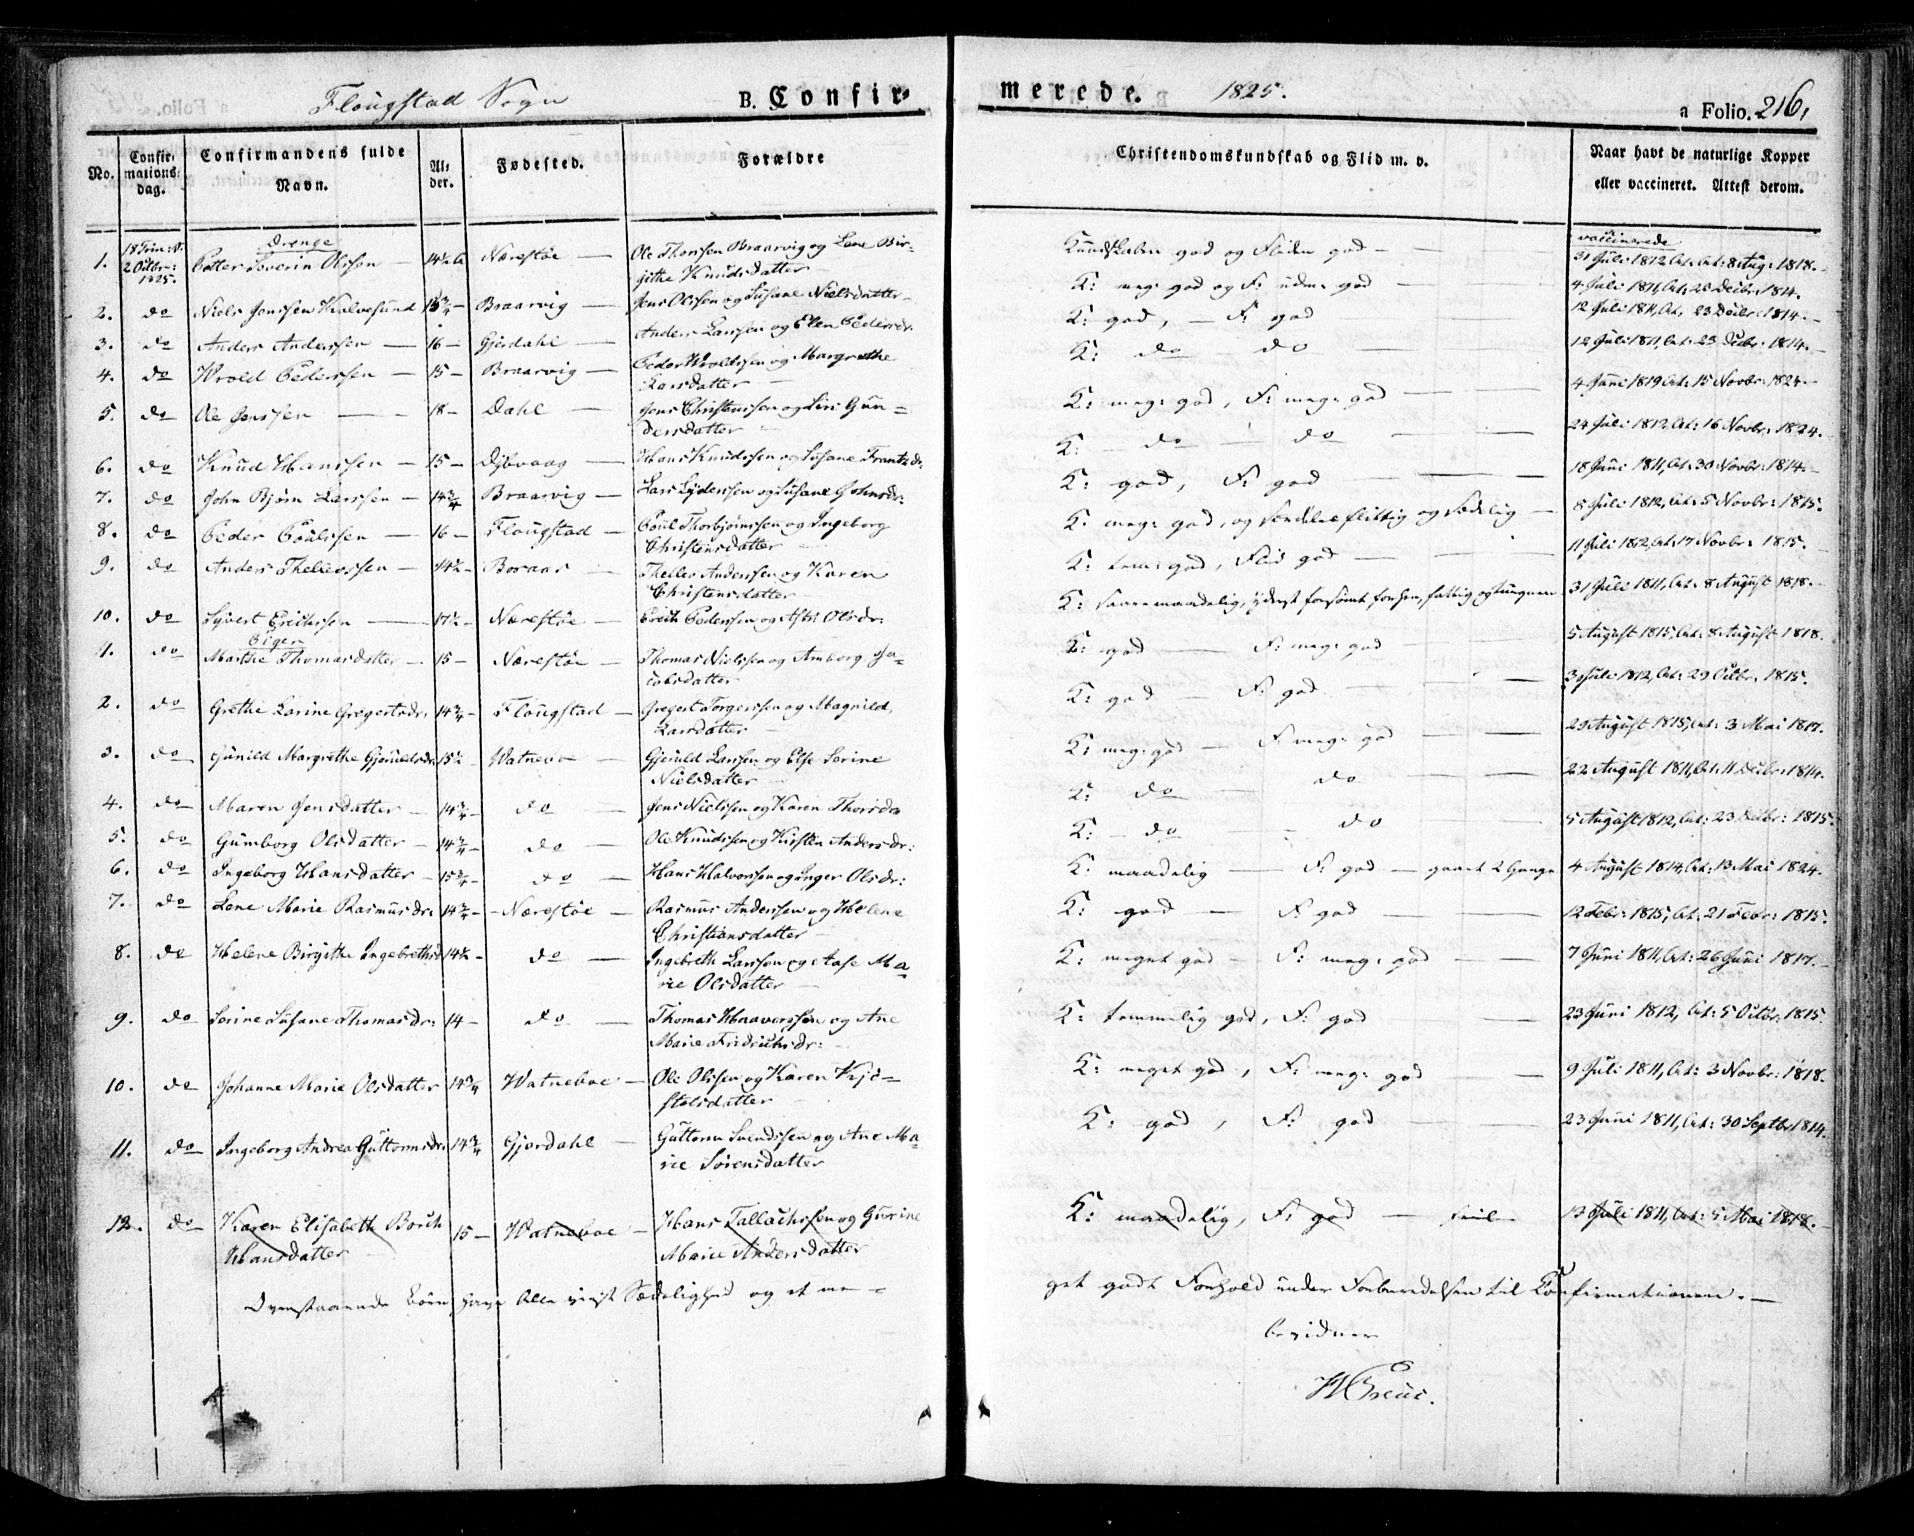 Flougstad Sogn B. Confirmerede. 1825. a Folio. 216.
No. Confirmationsdag. Confirmandens fulde Navn. Alder. Fødested. Forældre Christendomskundskab og Flid m. v. Naar havt de naturlige Kopper eller vaccineret. Attest derom.
Drenge vaccinerede
1. 18 Trin: 2 Octbr: 1825. Petter Severin Olssen 14½ Nærestøe Ole Thorssen Braarvig og Lene Birgithe Knudsdatter Kundskaben god og Fliden god 31 Juli 1812 At: 8 Aug: 1818.
2. do Niels Jenssen Kalvesund Braarvig Jens Olssen og Susane Nielsdatter K: meg: god og F: god 4 Juli 1811, At: 23 Decbr: 1814.
3. do Anders Anderssen 16 Gjerdahl Anders Larssen og Elen Pedersdr. K: god, F: god 12 Juli 1811, At: 23 Decbr: 1814.
4. do Wrold Pederssen 15 Braarvig Peder Wroldssen og Margrethe Larsdatter K: do do 12 Juli 1811, At: 23 Decbr: 1814.
5. do Ole Jenssen 18 Dahl Jens Christenssen og Siri Gundersdatter K: meg: god, F: meg: god 4 Juni 1819 At: 15 Novbr: 1824.
6. do Knud Hanssen 15 Dybvaag Hans Knudssen og Susane Frantzdr: K: do do 24 Juli 1812 At: 16 Novbr: 1824.
7. do John Bjørn Larssen 14¾ Braarvig Lars Syverssen og Susane Johnsdr: K: god, F: god 18 Juni 1811, At: 30 Novbr: 1814.
8. do Peder Poulssen 16 Flougstad Poul Thorbjørnssen og Ingeborg Christensdatter K: meg: god, og særdeles flittig og sædelig 8 Juli 1812, At: 5 Novbr: 1815.
9. do Anders Thellevssen 14½ Boraas Thellev Anderssen og Karen Christensdatter K: tem: god, Flid god 11 Juli 1812, At: 17 Novbr: 1815.
10. do Syvert Erichssen 17½ Nærestøe Erich Pederssen og Astri Olsdr: K: saare maadelig, yderst forsømt forhen, fattig og tungnem 31 Juli 1811, At: 8 August 1818.
Piger
1. do Marthe Thomasdatter 15 Nærestøe Thomas Nielssen og Amborg Jacobsdatter K: god F: meg: god 5 August 1815, At: 8 August 1818.
2. do Grethe Larine Gregersdr: 14¾ Flougstad Gregert Torgerssen og Magnild Larsdatter K: god F: god 3 Juli 1812, At: 29 Octbr: 1815.
3. do Gunild Margrethe Gjeruldsdr: 15½ Watneboe Gjeruld Larssen og Else Sorine Nielsdatter K: meg: god F: meg: god 29 August 1815, At: 3 Mai 1817.
4. do Maren Jensdatter 14¾ do Jens Nielssen og Karen Thorsdr K: do do 22 August 1811, At: 11 Decbr: 1814.
5. do Gumborg Olsdatter 14¾ do Ole Knudssen og Kirsten Andersdr: K: do do 5 August 1812, At: 23 Decbr: 1815.
6. do Ingeborg Hansdatter 15¾ do Hans Halvorssen og Inger Olsdr: K: maadelig F: god gaaet 2 Gange 4 August 1814, At: 13 Mai 1824.
7. do Lene Marie Rasmusdr: 14¾ Nærestøe Rasmus Anderssen og Helene Christiansdatter K: god F: god 12 Febr: 1815, At: 21 Febr: 1815.
8. do Helene Birgithe Ingebrethsd 14½ do Ingebreth Larssen og Aase Marie Olsdatter K: meget god F: meg: god 7 Juni 1811, At: 26 Juni 1817.
9. do Sorine Susane Thomasdr: 14 do Thomas Haaverssen og Ane Marie Fridrichsdr: K: temmelig god, F: god 23 Juni 1812, At: 5 Octbr: 1815.
10. do Johanne Marie Olsdatter 14¾ Watneboe Ole Olssen og Karen Kjøstelsdatter K: meget god, F: meg: god 9 Juli 1811, At: 3 Novbr: 1818.
11. do Ingeborg Andrea Guttormsdr: 14¾ Gjerdahl Guttorm Svendssen og Ane Marie Sørensdatter K: god, F: god 23 Juni 1811, At: 30 Septbr 1814.
12. do Karen Elisabeth Borch Hansdatter 15 Watneboe Hans Tallachssen og Gurine Marie Andersdatter K: maadelig, F: god feil 13 Juli 1811, At: 5 Mai 1818.
Ovenstaaende Børn have Alle viist Sædelighed og et meget godt Forhold under Forberedelsen til Confirmationen.
bevidner